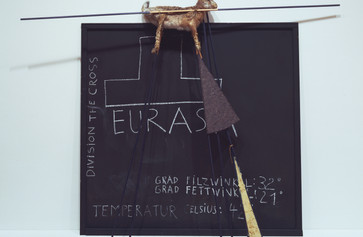 DIVISION THE CROSS
EURASIA
GRAD FILZWINKEL: 32°
GRAD FETTWINKEL: 21°
TEMPERATUR CELSIUS: 4